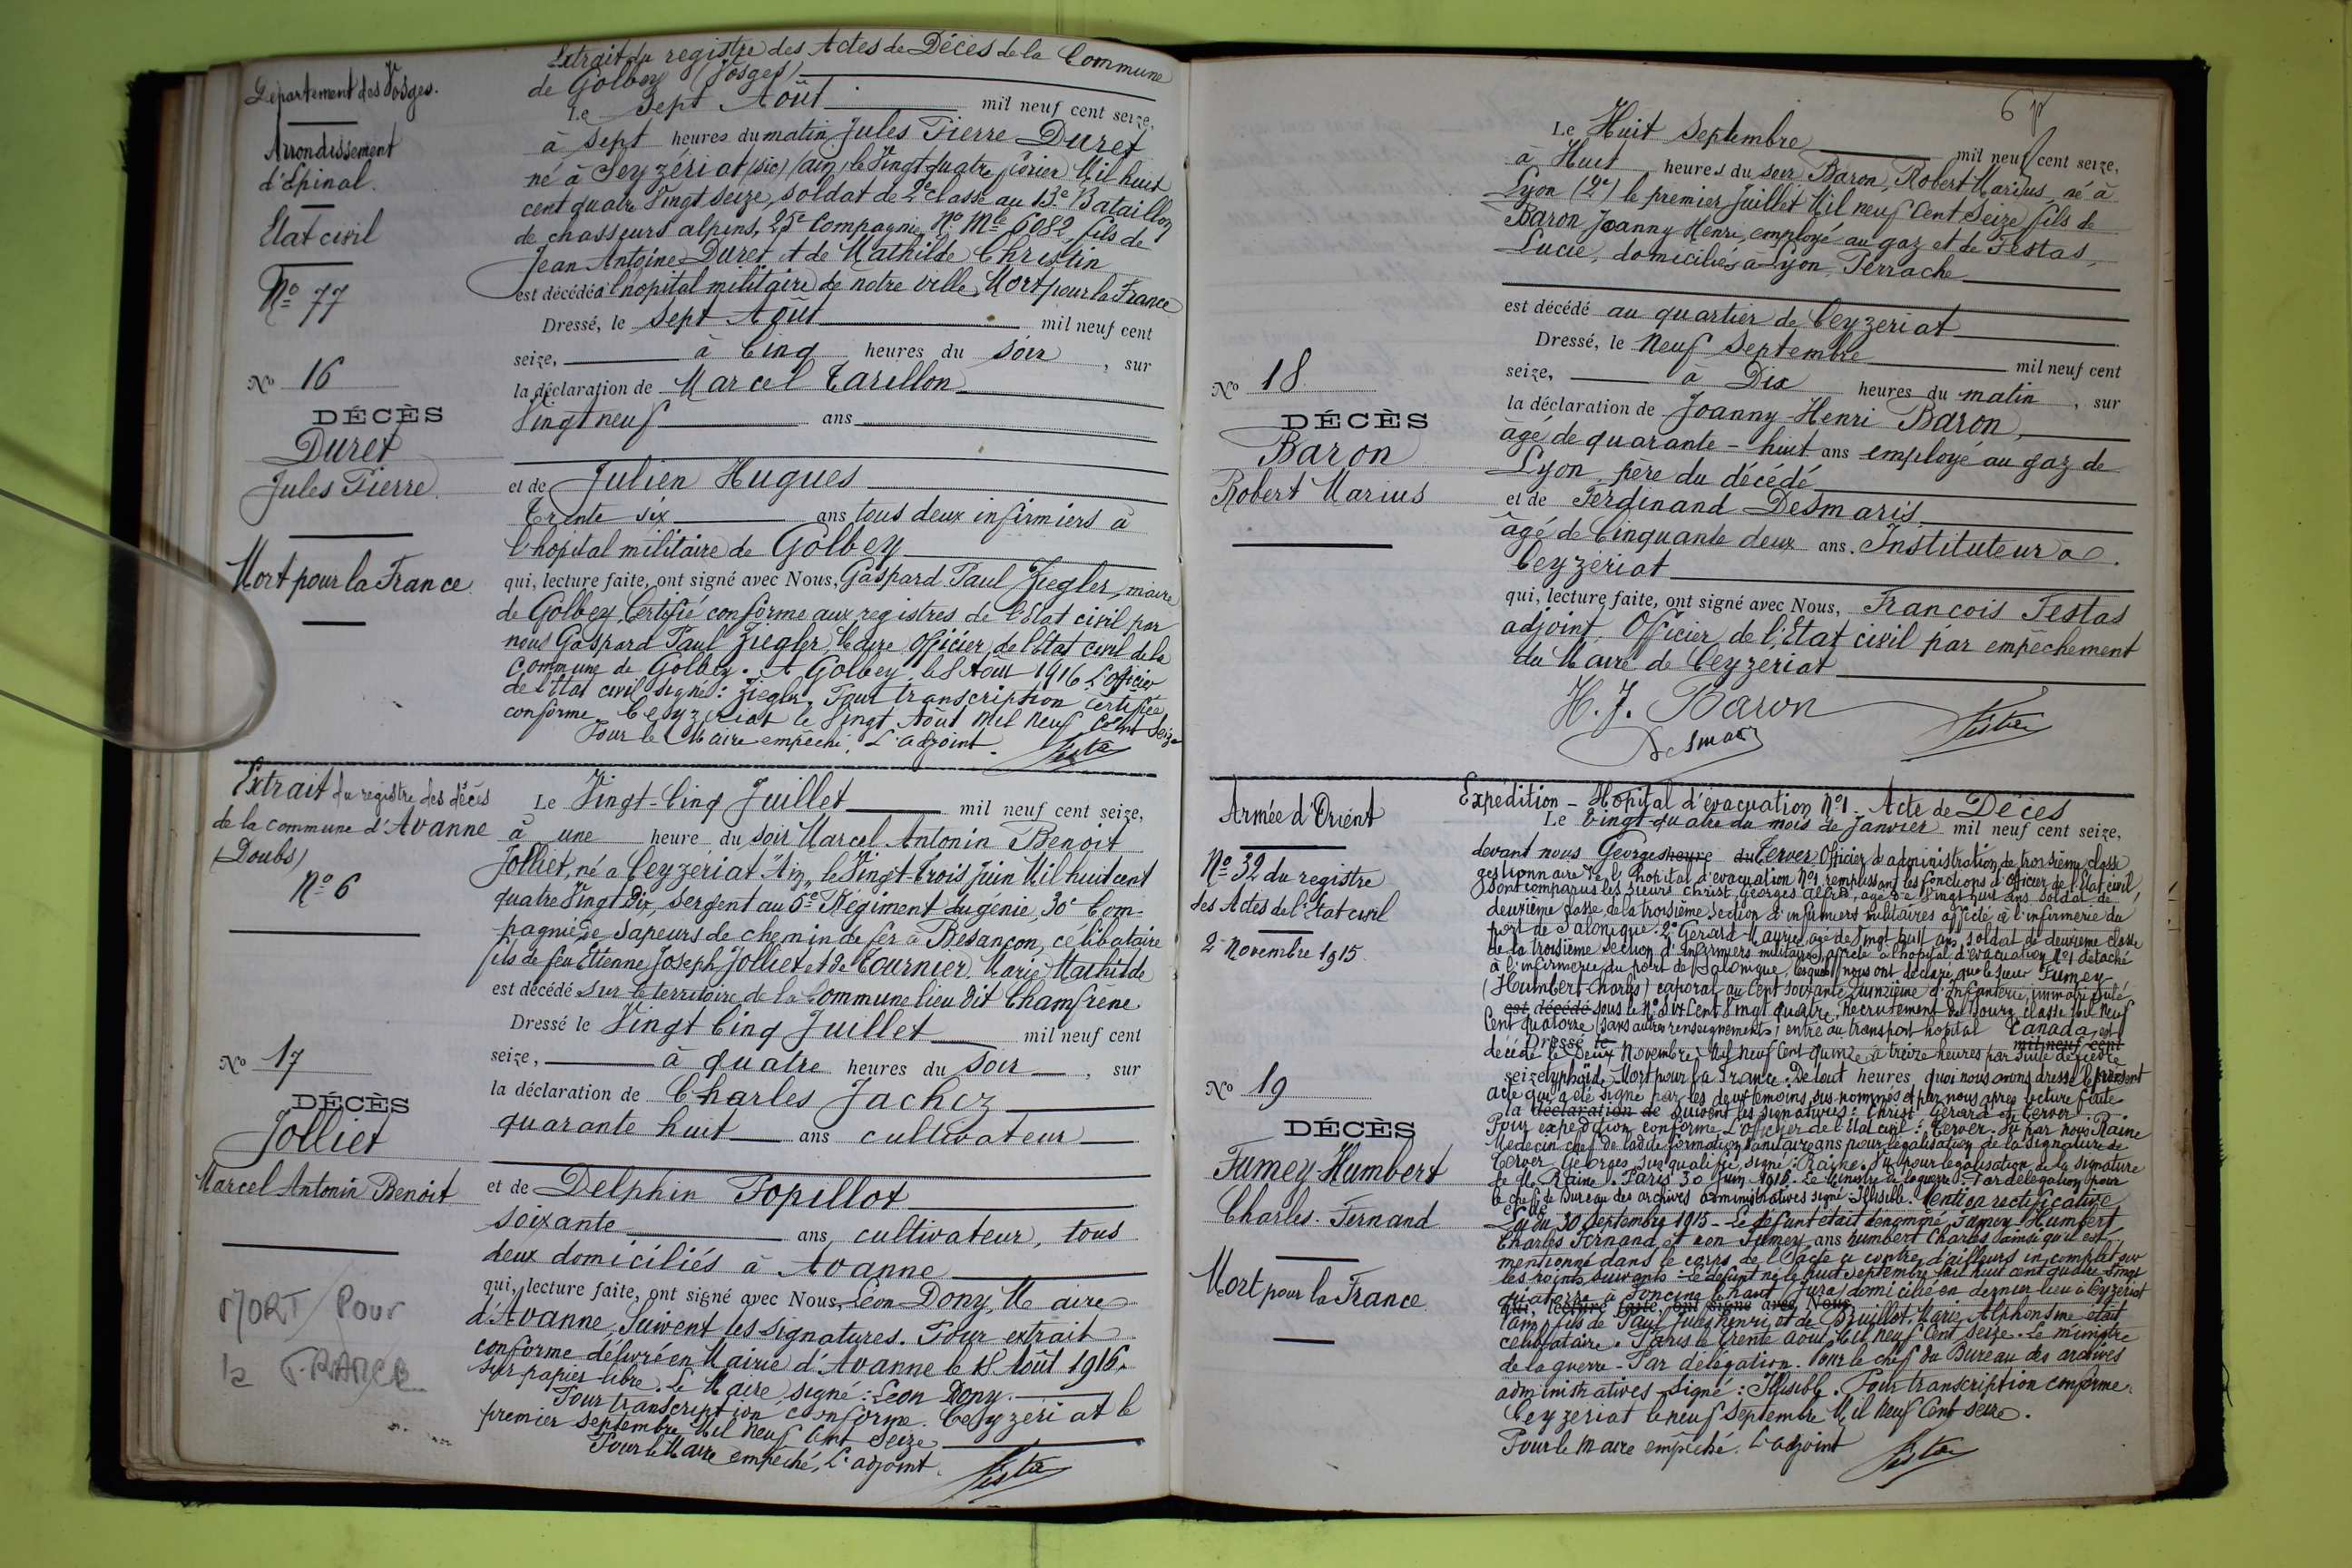 Département des Vosges.
Arrondissement
d'Epinal.
Etat civil
No 77
No 16
DÉCÈS
Duret
Jules Pierre
Mort pour la France.
Extrait du registre des Actes de Décès de la Commune
de Golbey (Vosges)
Le Sept Août mil neuf cent seize,
à Sept heures du matin Jules Pierre Duret
né à Seyzériat (sic) (Ain) le Vingt quatre Mil huit
cent quatre Vingt seize, soldat de 2e classe au 13e Bataillon
de chasseurs alpins, 25e Compagnie, No Mle 6082, fils de
Jean Antoine Duret et de Mathilde Christin
est décédé à l'hopital militaire de notre ville, Mort pour la France
Dressé, le Sept Août mil neuf cent
seize, à Cinq heures du soir, sur
la déclaration de Marcel Tarillon
Vingt neuf ans
et de Julien Hugues
Trente six ans tous deux infirmiers à
l'hopital militaire de Golbey
qui, lecture faite, ont signé avec Nous, Gaspard Paul Ziegler, maire
de Golbey. Certifié conforme aux registres de l'Etat civil par
nous Gaspard Paul Ziegler, Maire Officier de l'Etat civil de la
Commune de Golbey. A Golbey, le 8 Août 1916. L'officier
de l'Etat civil signé: Ziegler. Pour transcription certifiée
conforme. Ceyzériat le Vingt Août mil neuf cent seize
Pour le Maire empêché, L'adjoint.
Extrait du registre des décès
de la commune d'Avanne
(Doubs)
No 6
No 17
DÉCÈS
Jolliet
Marcel Antonin Benoit
MORT pour
la FRANCE
Le Vingt-Cinq Juillet mil neuf cent seize,
à une heure du soir Marcel Antonin Benoit
Jolliet, né à Ceyzériat "Ain" le Vingt trois juin Mil huit cent
quatre Vingt Dix, Sergent au 5e Régiment du génie, 30e Com-
pagnie de Sapeurs de chemin de fer à Besançon, célibataire
fils de feu Etienne Joseph Jolliet et de Tournier, Marie Mathilde
est décédé sur le territoire de la Commune lieu dit Chamfrêne.
Dressé le Vingt Cinq Juillet mil neuf cent
seize, à quatre heures du soir, sur
la déclaration de Charles Jachez
quarante huit ans cultivateur
et de Delphin Popillot
soixante ans, cultivateur, tous
deux domiciliés à Avanne
qui, lecture faite, ont signé avec Nous, Léon Dony, Maire
d'Avanne, Suivent les signatures. Pour extrait
conforme délivré en Mairie d'Avanne le 18 Août 1916,
sur papier libre. Le Maire signé: Léon Dony.
Pour transcription conforme. Ceyzériat le
premier septembre Mil neuf cent seize
Pour le Maire empêché, L'adjoint.
No 18
DÉCÈS
Baron
Robert Marius
Le Huit Septembre mil neuf cent seize,
à Huit heures du soir Baron, Robert Marius, né à
Lyon (2e) le premier Juillet Mil neuf Cent Seize fils de
Baron Joanny Henri, employé au gaz et de Festas,
Lucie, domiciliés à Lyon, Perrache
est décédé au quartier de Ceyzeriat
Dressé, le Neuf Septembre mil neuf cent
seize, à Dix heures du matin, sur
la déclaration de Joanny-Henri Baron,
âgé de quarante-huit ans employé au gaz de
Lyon, père du décédé
et de Ferdinand Desmaris
âgé de Cinquante deux ans. Instituteur à
Ceyzériat
qui, lecture faite, ont signé avec Nous, Francois Festas
adjoint, Officier de l'Etat civil par empêchement
du Maire de Ceyzeriat
H. J. Baron
Armée d'Orient
No 32 du registre
des Actes de l'Etat civil
2 Novembre 1915.
No 19
DÉCÈS
Fumey-Humbert
Charles-Fernand
Mort pour la France
Expédition - Hôpital d'évacuation No 1 - Acte de Décès
Le Vingt-quatre du mois de Janvier mil neuf cent seize,
devant nous Georges heure du Cerver, Officier d'administration de troisième classe
gestionnaire de l'hopital d'évacuation No 1 remplissant les fonctions d'officier de l'Etat civil,
sont comparus les sieurs Christ, Georges Alfred, âgé de Vingt huit ans soldat de
deuxième classe de la troisième section d'infirmiers militaires affecté à l'infirmerie du
port de Salonique. 2o Gérard Maurice, âgé de Vingt huit ans, soldat de deuxième classe
de la troisième section d'infirmiers militaires affecté à l'hopital d'évacuation No 1 détaché
à l'infirmerie du port de Salonique, lesquels nous ont déclaré que le sieur Fumey
(Humbert-Charles) caporal au Cent soixante quinzième d'Infanterie, immatriculé
est décédé sous le No Six Cent Vingt quatre, Recrutement de Bourg classe Mil Neuf
Cent quatorze (sans autres renseignements) entré au transport hopital Canada, est
Dressé le mil neuf cent
décédé le Deux Novembre Mil neuf Cent quinze à treize heures par suite de fièvre
seize typhoïde. Mort pour la France. De tout heures quoi nous avons dressé le présent
acte qui a été signé par les deux témoins sus-nommés et par nous après lecture faite
la déclaration de Suivent les signatures: Christ, Gérard et Cerver.
Pour expédition conforme L'officier de l'Etat civil: Cerver. Vu par nous Raine
Médecin chef de ladite formation sanitaire ans pour légalisation de la signature de
Cerver Georges sus qualifié, signé: Raine. Vu pour légalisation de la signature
de M. Raine. Paris 30 Juin 1916. Le Ministre de la guerre - Par délégation pour
le chef de Bureau des archives administratives signé: Illisible. Mention rectificative
et de
Loi du 30 septembre 1915 - Le défunt était dénommé Fumey-Humbert
Charles Fernand, et non Fumey ans humbert Charles ainsi qu'il est
mentionné dans le corps de l'acte ci contre d'ailleurs incomplet sur
les points suivants: Le défunt né le huit septembre Mil huit cent quatre Vingt
quatorze à Foncine le haut (Jura) domicilié en dernier lieu à Ceyzériat
qui, lecture faite, ont signé avec Nous,
(Ain) fils de Paul Jules Henri et de Bruillot, Marie Alphonsine était
célibataire. Paris le Trente août Mil neuf Cent seize. Le ministre
de la guerre - Par délégation. Pour le chef du Bureau des archives
administratives - Signé: Illisible. Pour transcription conforme.
Ceyzeriat le neuf Septembre Mil neuf Cent seize.
Pour le maire empêché. L'adjoint